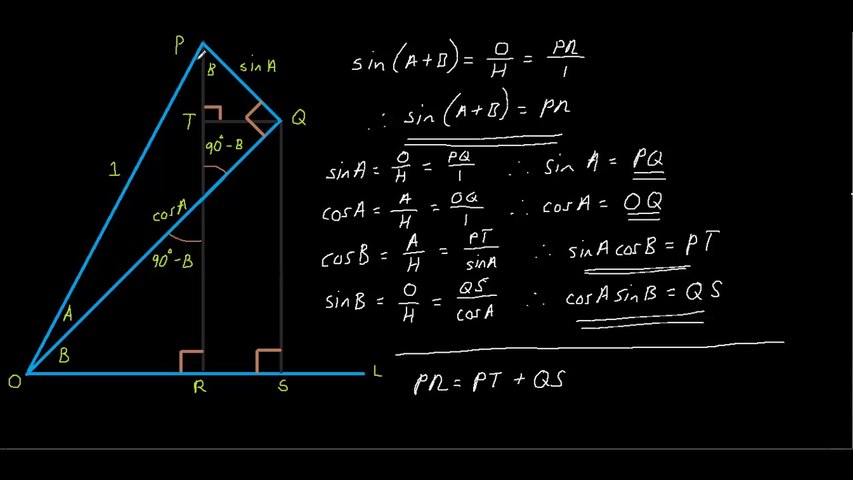 P
B
sinA
T
Q
90°-B
1
cosA
90°-B
A
B
O
R
S
L
sin(A+B) = O/H = PR/1
∴ sin(A+B) = PR
sinA = O/H = PQ/1 ∴ sin A = PQ
cosA = A/H = OQ/1 ∴ cosA = OQ
cosB = A/H = PT/sinA ∴ sinAcosB = PT
sinB = O/H = QS/cosA ∴ cosAsinB = QS
PR = PT + QS